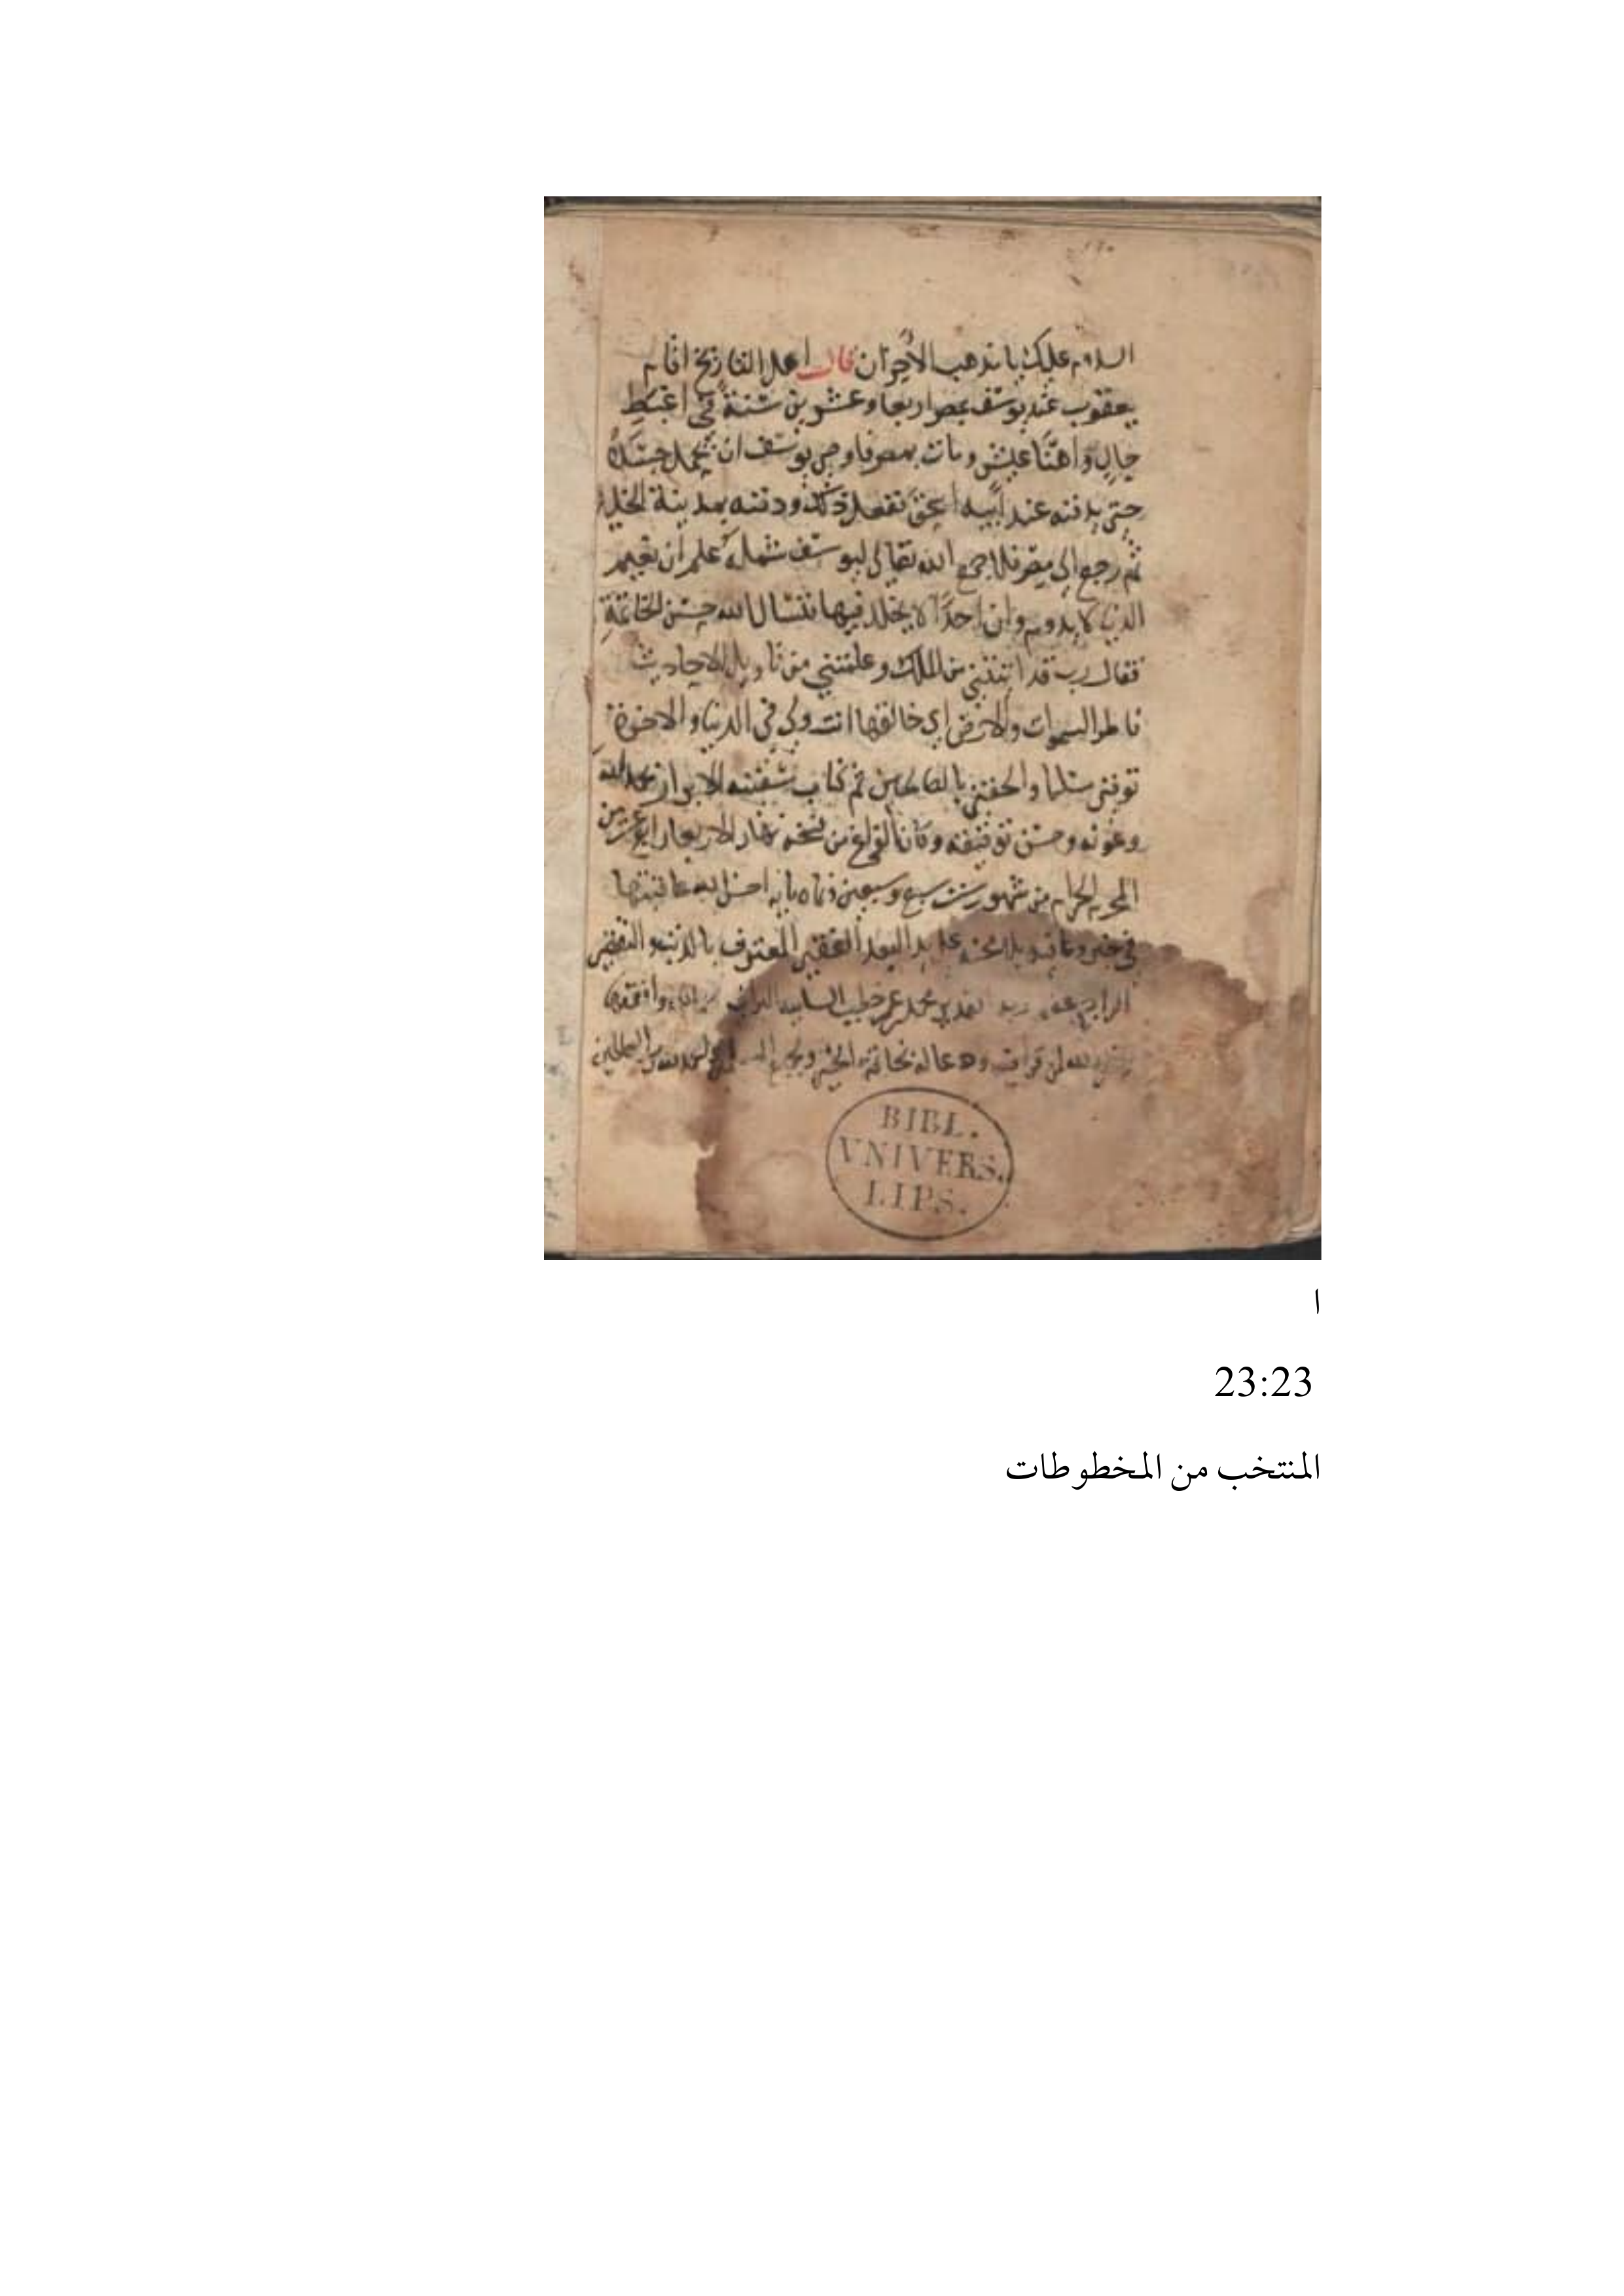 السلام عليك يا مذهب الأحزان قال اهل التاريخ اقام
يعقوب عند يوسف بمصر اربعا وعشرين سنة في اغبط
حال واهنا عيش ومات بمصر فاوصى يوسف ان يحمل جسده
حتى يدفنه عند ابيه اسحق ففعل ذلك ودفنه بمدينة الخليل
ثم رجع الى مصر فلما جمع الله تعالى ليوسف شمله علم ان نعيم
الدنيا لا يدوم وان احدًا لا يخلد فيها فسال الله حسن الخاتمة
فقال رب قد اتيتني من الملك وعلمتني من تاويل الاحاديث
فاطر السموات والارض اي خالقها انت ولي في الدنيا والاخرة
توفني مسلما والحقني بالصالحين تم كتاب سفينة الابرار بحمد الله
وعونه وحسن توفيقه وكان الفراغ من نسخه نهار الاربعا رابع عشرين
المحرم الحرام من شهور سنت سبع وسبعين وثماه مايه احسن الله عاقبتها
في خير وعافيه بلا محنه على يد العبد الفقير المعترف بالذنب والتقصير
الراجي عفو ربه القدير محمد عمر خطيب
لمن قرا فيه ودعا له بخاتمة الخير ولجميع والحمد لله رب العالمين
BIBL.
VNIVERS.
LIPS.
ا
23:23
المنتخب من المخطوطات